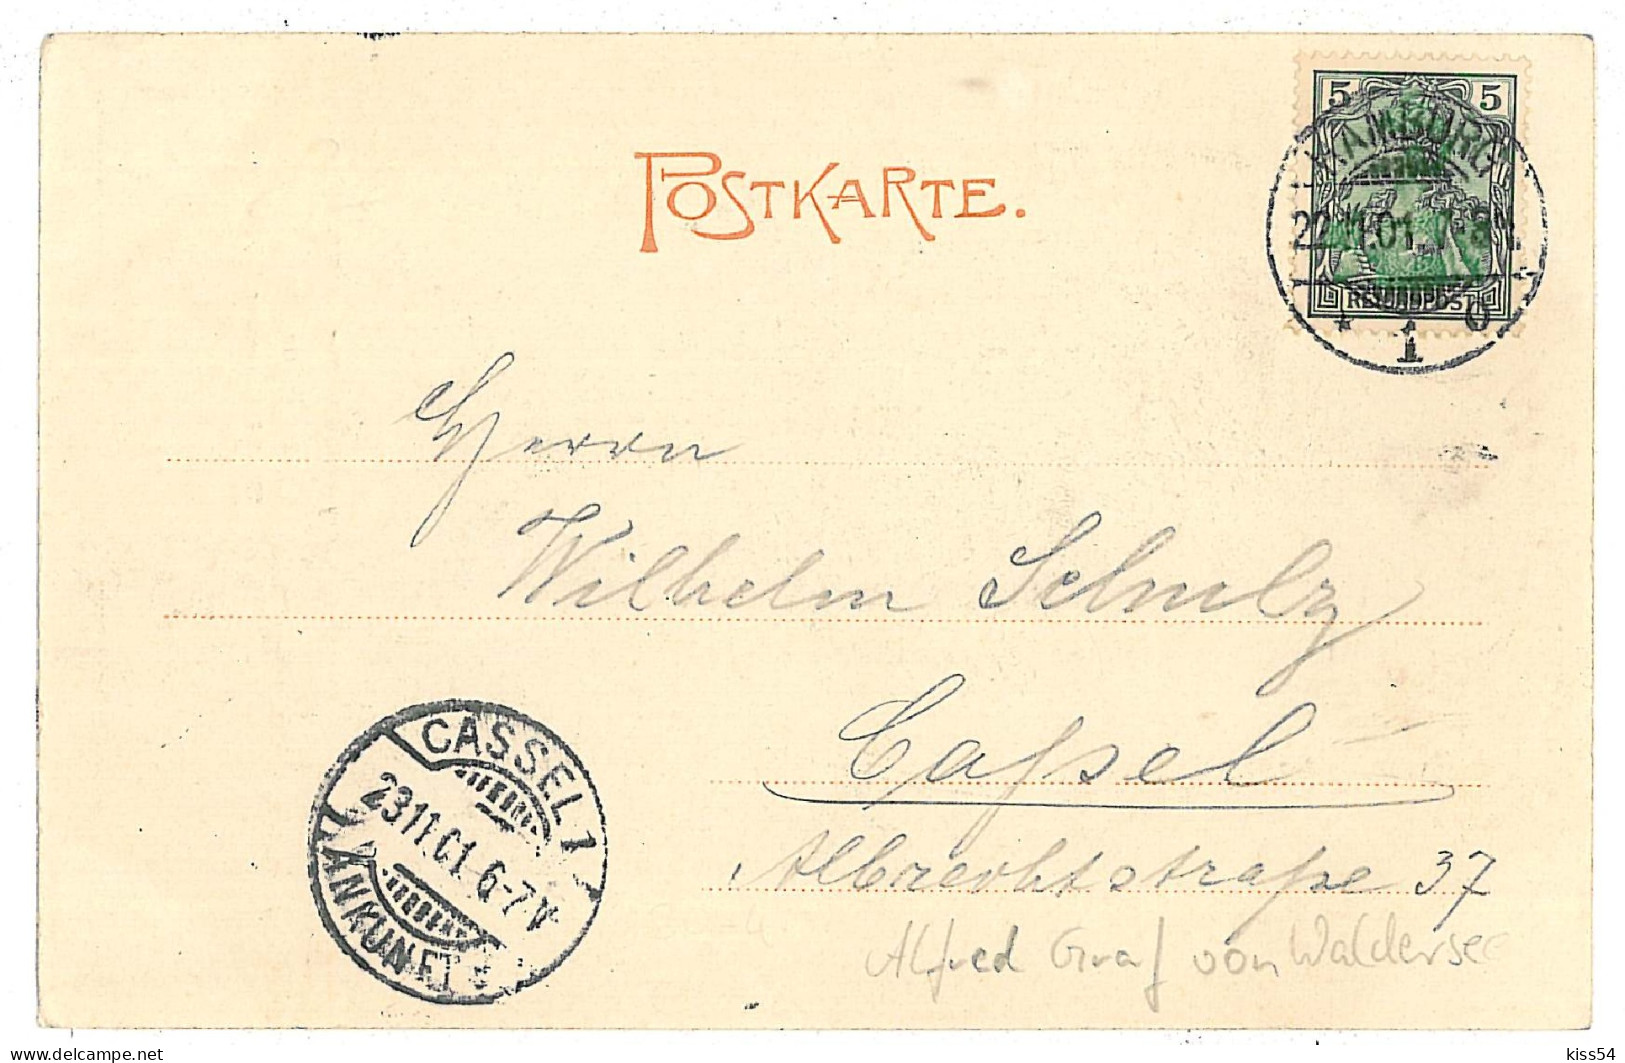 POSTKARTE.
5 5
HAMBURG
22.11.01.
REICHSPOST
* 1
Herrn
Wilhelm Schulz
Cassel
Albrechtstraße 37
Alfred Graf von Waldersee
CASSEL 1
23 11.01. 6-7 V
ANKUNFT
delcampe.net
kiss54